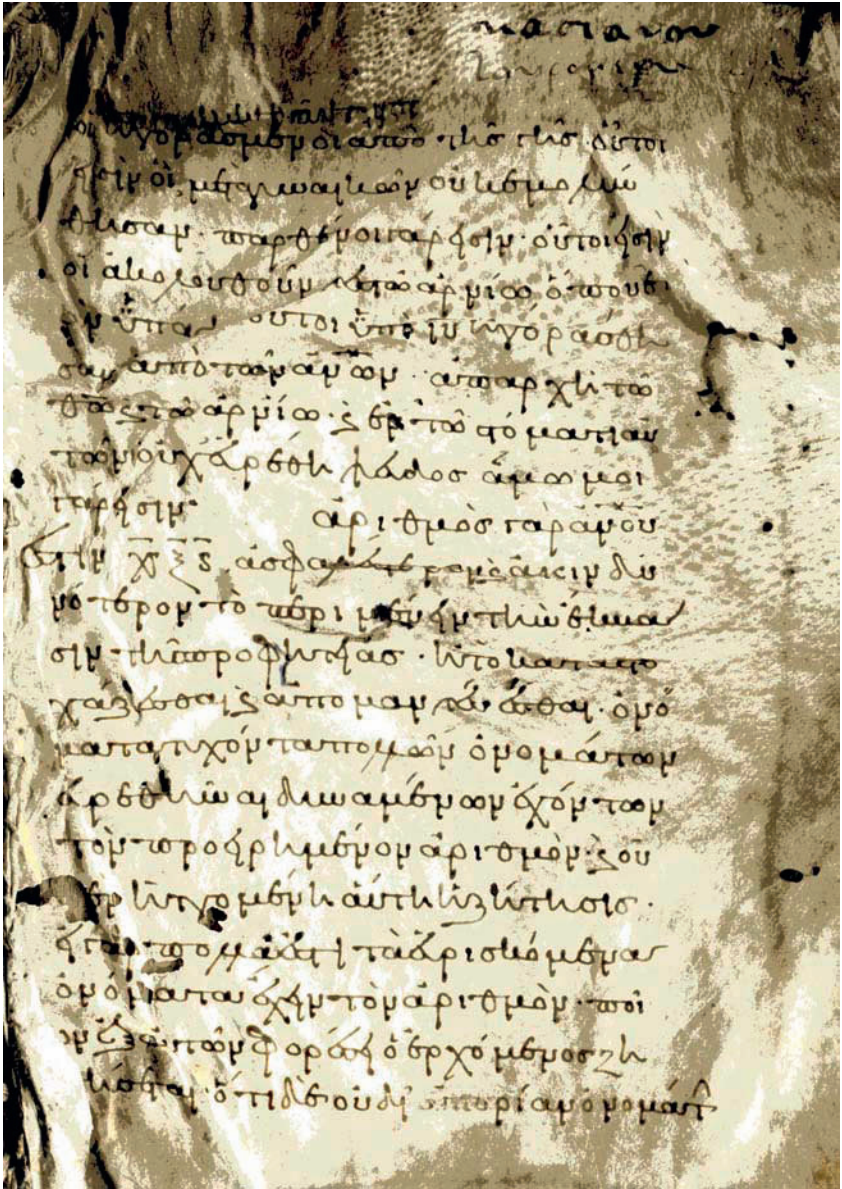 κασιανου
οἱ ἠγορασμένοι ἀπὸ τῆς γῆς· οὗτοι
εἰσὶν οἳ μετὰ γυναικῶν οὐκ εμολύν
θησαν· παρθένοι γάρ εἰσιν· οὗτοι εἰσὶν
οἱ ἀκολουθοῦντες τῶ ἀρνίω ὅπου ἐ
ὰν ὑπάγ οὗτοι ὑπὸ ι̅υ̅ ἠγοράσθη
σαν ἀπὸ τῶν α̅ν̅ων· ἀπαρχὴ τῶ
θ̅ω̅ ϛ τῶ ἀρνίω· ϛ ἐν τῶ στόματι αυ
τῶν οὐχ εὑρέθη ψεῦδος ἄμωμοι
γάρ εἰσιν· ἀριθμὸς γὰρ α̅ν̅ο̅υ̅
ἐστὶν χ̅ξ̅ϛ̅ ἀσφαλέστερον ϛ ἀκινδυ
νότερον τὸ περιμένειν τὴν ἔκβα
σιν τῆς προφητείας· ἢ τὸ καταστο
χάζεσθαι ϛ ἀπομαντεύεσθαι· ὀνό
ματα τυχόντα πολλῶν ὀνομάτων
εὑρεθῆναι δυναμένων ἐχόντων
τὸν προειρημένον ἀριθμὸν· ϛ οὐ
αὐτὴ ἡ ζήτησις·
εἰ γὰρ πολλά ἐστι τὰ εὑρισκόμενα
ὀνόματα ἔχειν τὸν ἀριθμὸν· ποῖ
ον ἐξ αὐτῶν φορέσει ὁ ἐρχόμενος ζη
τήσεται· ὅτι δὲ οὐ δι' ἀπορίαν ὀνομάτ